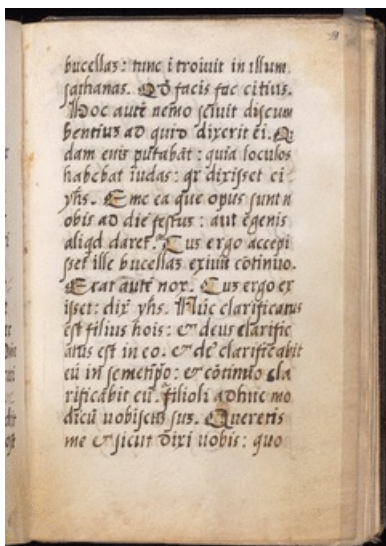 bucellaz : tunc i troiuit in illum
sathanas. Qd facis fac citius.
Hoc autē nemo sciuit discum
bentiuz ad quid dixerit ei. Q
dam enis putabāt : quia loculos
habebat iudas : qr dixisset ei
yhs. Eme ea que opus sunt n
obis ad die festus : aut egenis
aliqd daret. Cuz ergo accepi
sset ille bucellaz exiuit cōtinuo.
Erat autē nox. Cuz ergo ex
isset : dix yhs. Nūc clarificatus
est filius hois : & deus clarific
atus est in eo. & de clarificabit
eū in semetipo : & cōtinuo cla
rificabit eū. filioli adhuc mo
dicū uobiscuz suz. Queretis
me & sicut dixi uobis : quo